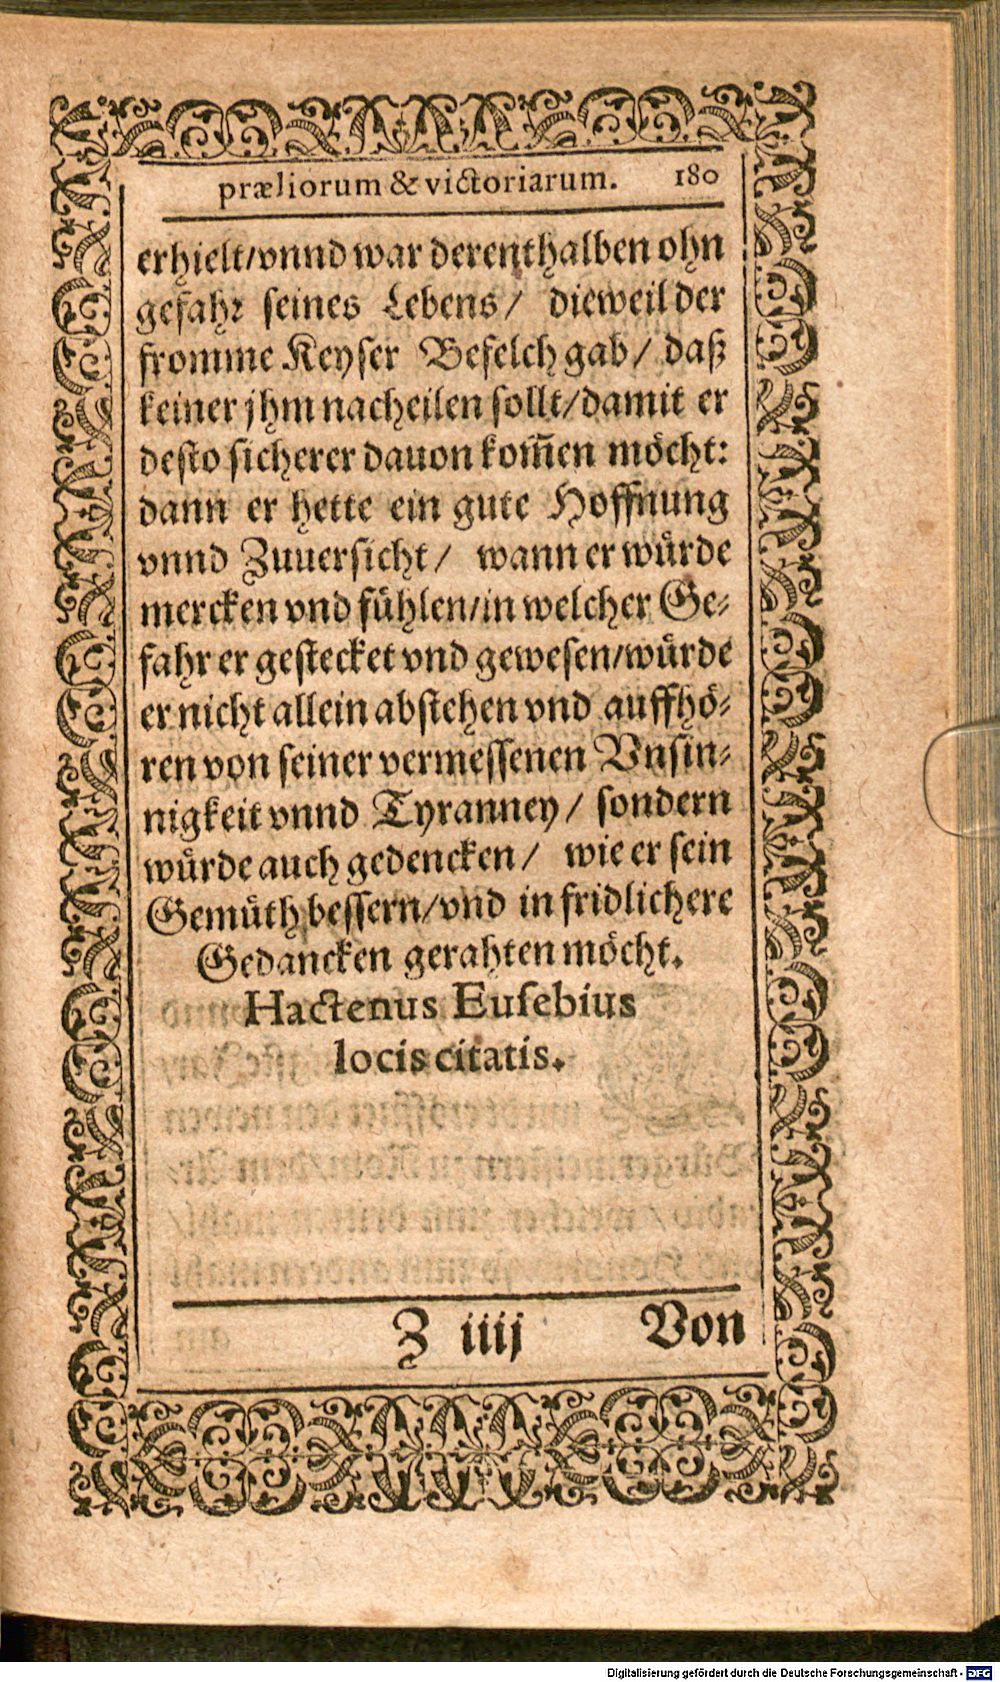 præliorum & victoriarum. 180
erhielt/vnnd war derenthalben ohn
gefahr seines Lebens / dieweil der
fromme Keyser Befelch gab / daß
keiner jhm nacheilen sollt/damit er
desto sicherer dauon kom̃en möcht:
dann er hette ein gute Hoffnung
vnnd Zuuersicht / wann er würde
mercken vnd fühlen/in welcher Ge-
fahr er gestecket vnd gewesen/würde
er nicht allein abstehen vnd auffhö-
ren von seiner vermessenen Vnsin-
nigkeit vnnd Tyranney / sondern
würde auch gedencken / wie er sein
Gemüth bessern/vnd in fridlichere
Gedancken gerahten möcht.
Hactenus Eusebius
locis citatis.
Z iiij Von
Digitalisierung gefördert durch die Deutsche Forschungsgemeinschaft - DFG